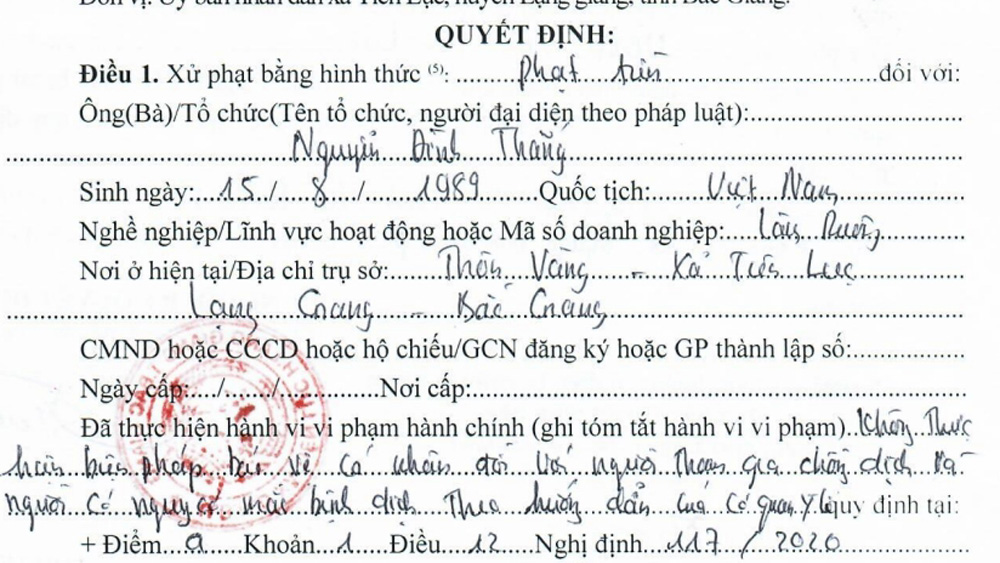 Đơn vị: Ủy ban nhân dân xã Tiên Lục, huyện Lạng giang, tỉnh Bắc Giang.
QUYẾT ĐỊNH:
Điều 1. Xử phạt bằng hình thức (5): phạt tiền đối với:
Ông(Bà)/Tổ chức(Tên tổ chức, người đại diện theo pháp luật):
Nguyễn Đình Thắng
Sinh ngày: 15 / 8 / 1989 Quốc tịch: Việt Nam
Nghề nghiệp/Lĩnh vực hoạt động hoặc Mã số doanh nghiệp: Làm Ruộng
Nơi ở hiện tại/Địa chỉ trụ sở: Thôn Vàng - Xã Tiên Lục
Lạng Giang - Bắc Giang
CMND hoặc CCCD hoặc hộ chiếu/GCN đăng ký hoặc GP thành lập số:
Ngày cấp: / / Nơi cấp:
Đã thực hiện hành vi vi phạm hành chính (ghi tóm tắt hành vi vi phạm) Không Thực
hiện biện pháp bảo vệ cá nhân đối với người tham gia chống dịch và
người có nguy cơ mắc bệnh dịch theo hướng dẫn của cơ quan y tế quy định tại:
+ Điểm a Khoản 1 Điều 12 Nghị định 117 / 2020